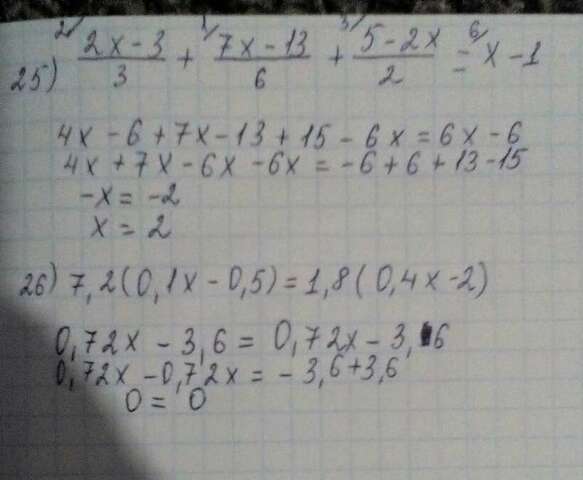 25) 2/ (2x-3)/3 + 1/ (7x-13)/6 + 3/ (5-2x)/2 = 6/ x-1
4x-6+7x-13+15-6x=6x-6
4x+7x-6x-6x=-6+6+13-15
-x=-2
x=2
26) 7,2(0,1x-0,5)=1,8(0,4x-2)
0,72x-3,6=0,72x-3,6
0,72x-0,72x=-3,6+3,6
0=0